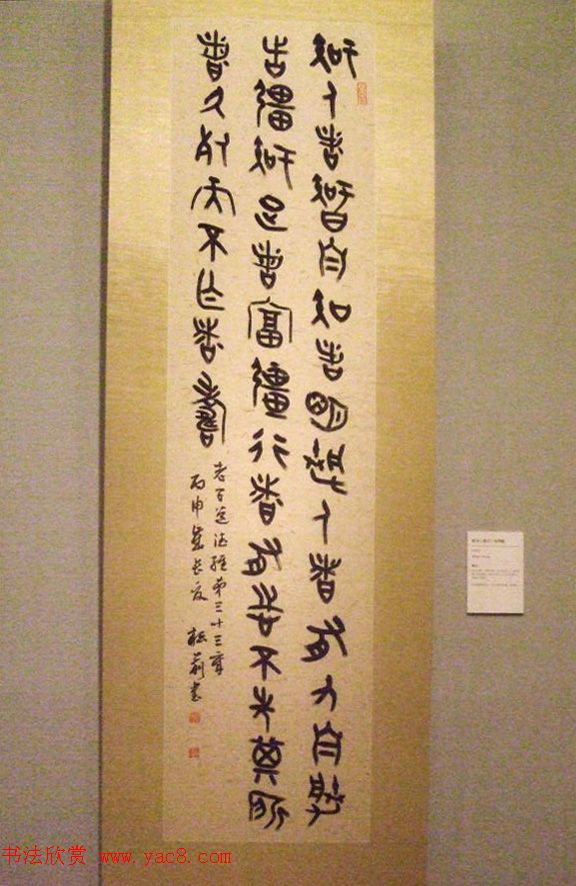 知人者智自知者明勝人者有力自勝
者彊知足者富彊行者有志不失其所
者久死而不亡者壽
老子道德經第三十三章
丙申年長夏 書
书法欣赏 www.yac8.com